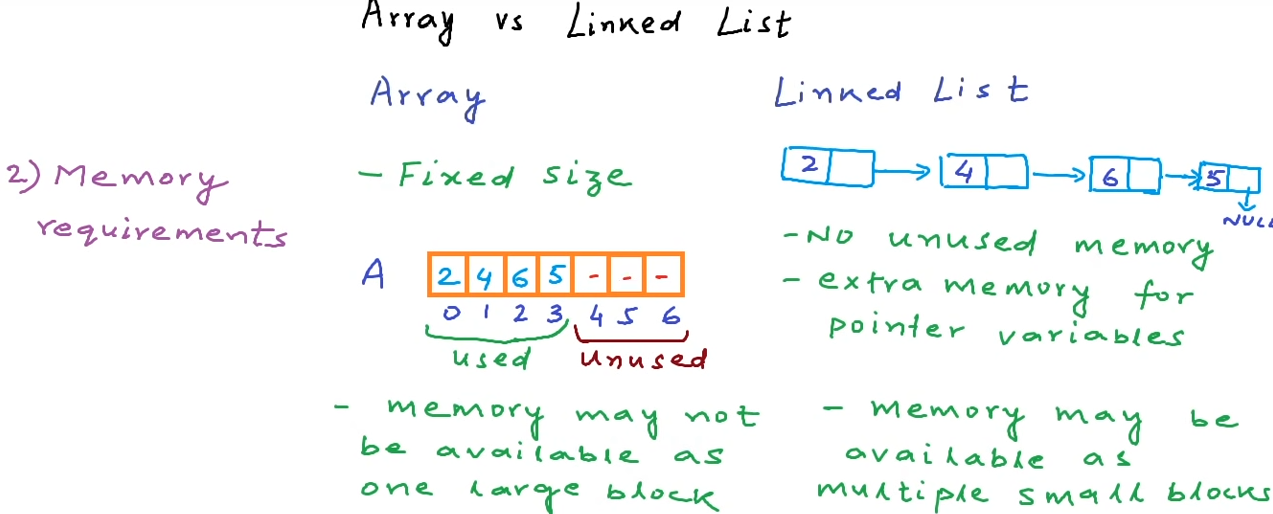 Array vs Linked List
Array
Linked List
2) Memory
requirements
- Fixed size
A 2 4 6 5 - - -
0 1 2 3 4 5 6
used unused
- memory may not
be available as
one large block
2 4 6 5
NULL
- No unused memory
- extra memory for
pointer variables
- memory may be
available as
multiple small blocks